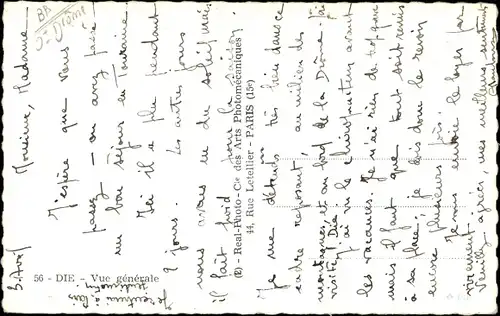 Dié Drome
BB
5 Avril
Monsieur, Madame
J'espère que vous
passez — ou avez passé
un bon séjour en
Ici il a plu pendant
2 jours. Les autres jours
nous avons eu du soleil mais
il fait froid pour la saison
Je me détends très bien dans ce
cadre reposant, au milieu des
montagnes et au bord de la Drôme. J'ai
visité Die. J'ai vu le chirurgien avant
les vacances. Je n'ai rien de trop grave
mais il faut que tout soit remis
à sa place; je dois donc le revoir
encore plusieurs fois.
Je vous envoie le loyer par
virement
Veuillez agréer, mes meilleurs sentiments
56 - DIE - Vue générale
(R) - Real-Photo - Cie des Arts Photomécaniques
44, Rue Letellier - PARIS (15e)